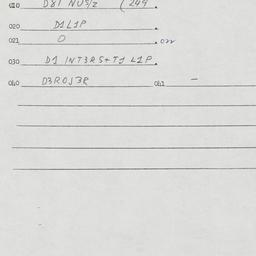 010 D81 NUS/2 (244.
020 D1L1P .
021 O . 022
030 D1 INT3RS+T1 L1P.
040 D3ROJ3R 041 –